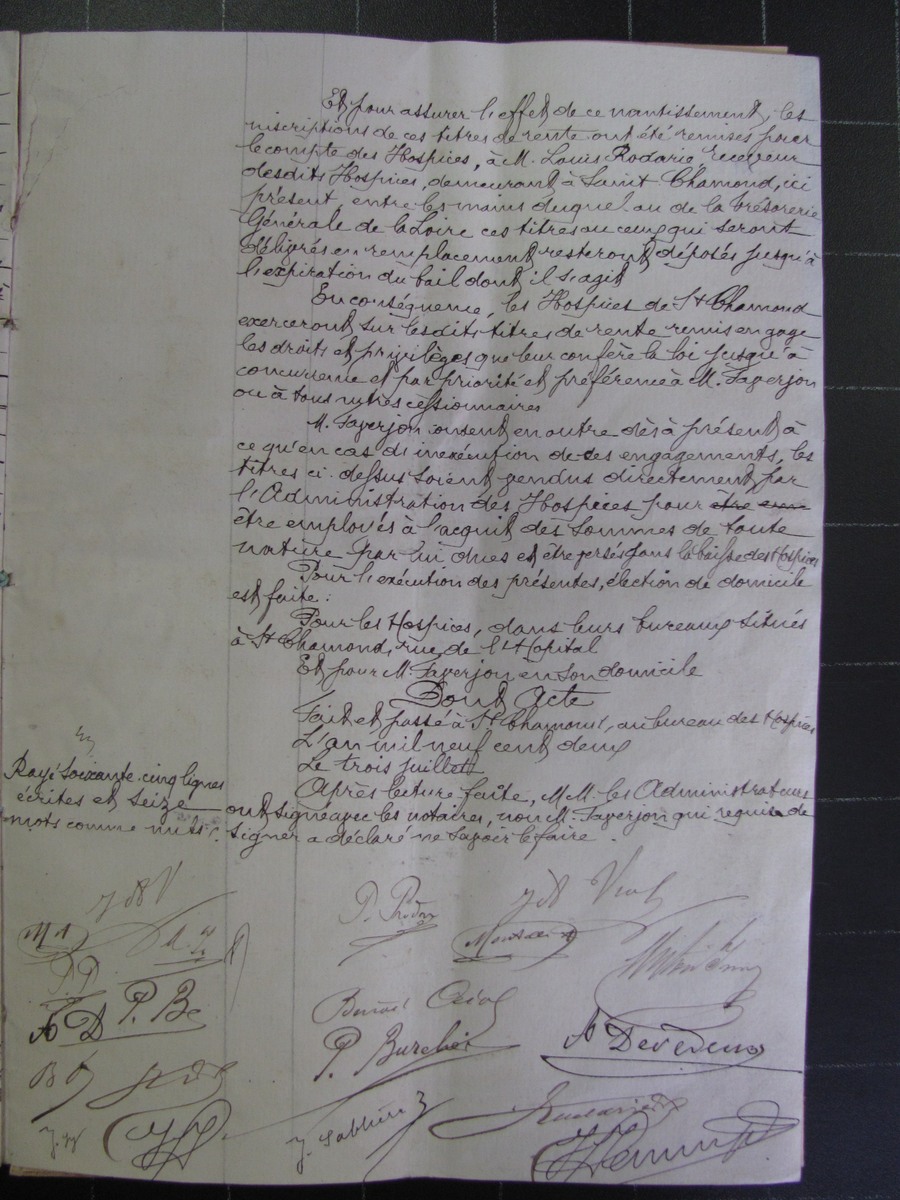 Et pour assurer l'effet de ce nantissement, les
inscriptions de ces titres de rente ont été remises pour
le compte des Hospices, à M. Louis Rodarie receveur
desdits Hospices, demeurant à Saint Chamond, ici
présent, entre les mains duquel ou de la Trésorerie
Générale de la Loire ces titres ou ceux qui seront
délivrés en remplacement resteront déposés jusqu'à
l'expiration du bail dont il s'agit
En conséquence, les Hospices de St Chamond
exerceront sur lesdits titres de rente remis en gage
les droits et privilèges que leur confère la loi jusqu'à
concurrence et par priorité et préférence à M. Faverjon
ou à tous autres cessionnaires
M. Faverjon consent en outre dès à présent à
ce qu'en cas di inexécution de ces engagements, les
titres ci-dessus soient vendus directement par
l'Administration des Hospices pour être
être employés à l'acquit des sommes de toute
nature par lui dues et être versés dans la caisse des Hospices
Pour l'exécution des présentes, élection de domicile
est faite :
Pour les Hospices, dans leurs bureaux situés
à St Chamond, rue de l'Hôpital
Et pour M. Faverjon en son domicile
Dont Acte
Fait et passé à St Chamond, au bureau des Hospices
L'an mil neuf cent deux
Le trois juillet
Après lecture faite, M.M. les Administrateurs
ont signé avec les notaires, non M. Faverjon qui requis de
signer a déclaré ne savoir le faire.
Rayé soixante-cinq lignes
écrites et seize
mots comme nuls.
J B V
P. P
A D P. Be
P. Burelier
A Devedeux
J. Sabl